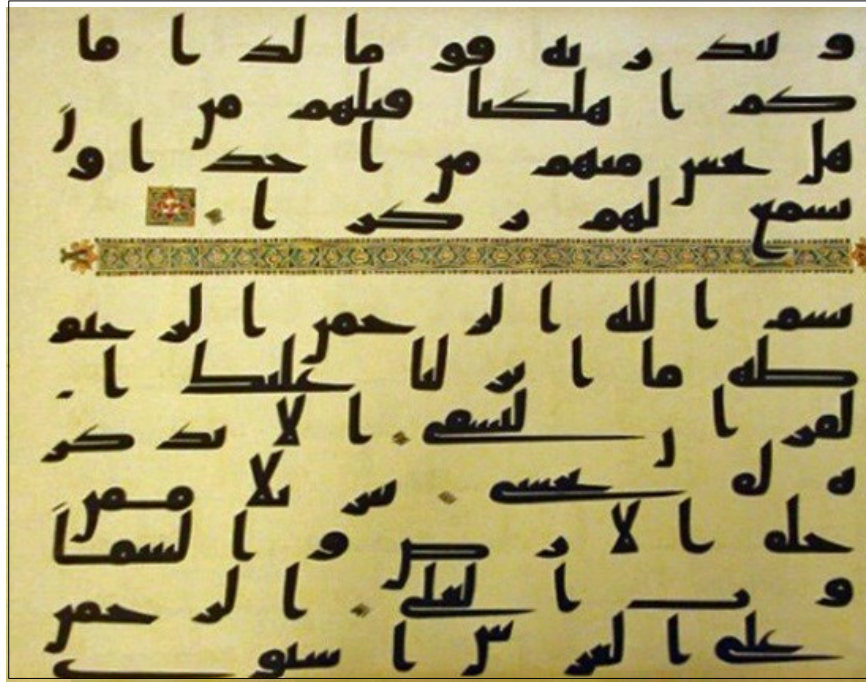 و تنذر به قو ما لد ا و
كم ا هلكنا قبلهم من قر
هل تحس منهم من ا حد ا و
تسمع لهم ر كز ا
بسم ا لله ا لر حمن ا لر حيم
طه ما ا نز لنا عليك ا
لقر ا ن لتشقى ا لا تذ كر
ة لمن يخشى تنز يلا ممن
خلق ا لا ر ض و ا لسمو
ت ا لعلى ا لر حمن
على ا لعر ش ا ستوى